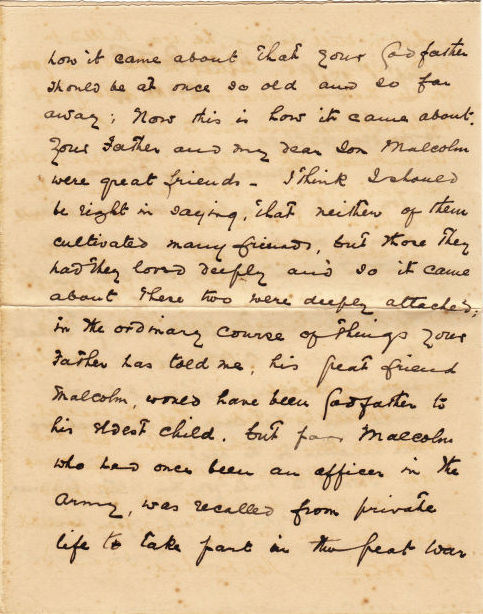 how it came about that your Godfather
should be at once so old and so far
away; Now this is how it came about.
Your Father and my dear Son Malcolm
were great friends - I think I should
be right in saying, that neither of them
cultivated many friends, but those they
had they loved deeply and so it came
about these two were deeply attached;
in the ordinary course of things your
Father has told me, his great friend
Malcolm, would have been Godfather to
his eldest child. But Malcolm
who had once been an officer in the
Army, was recalled from private
life to take part in the Great War